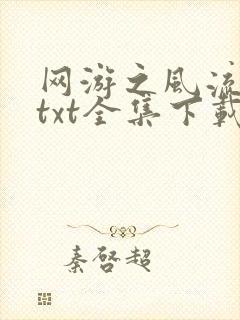 网游之风流
txt全集下载
秦啓超